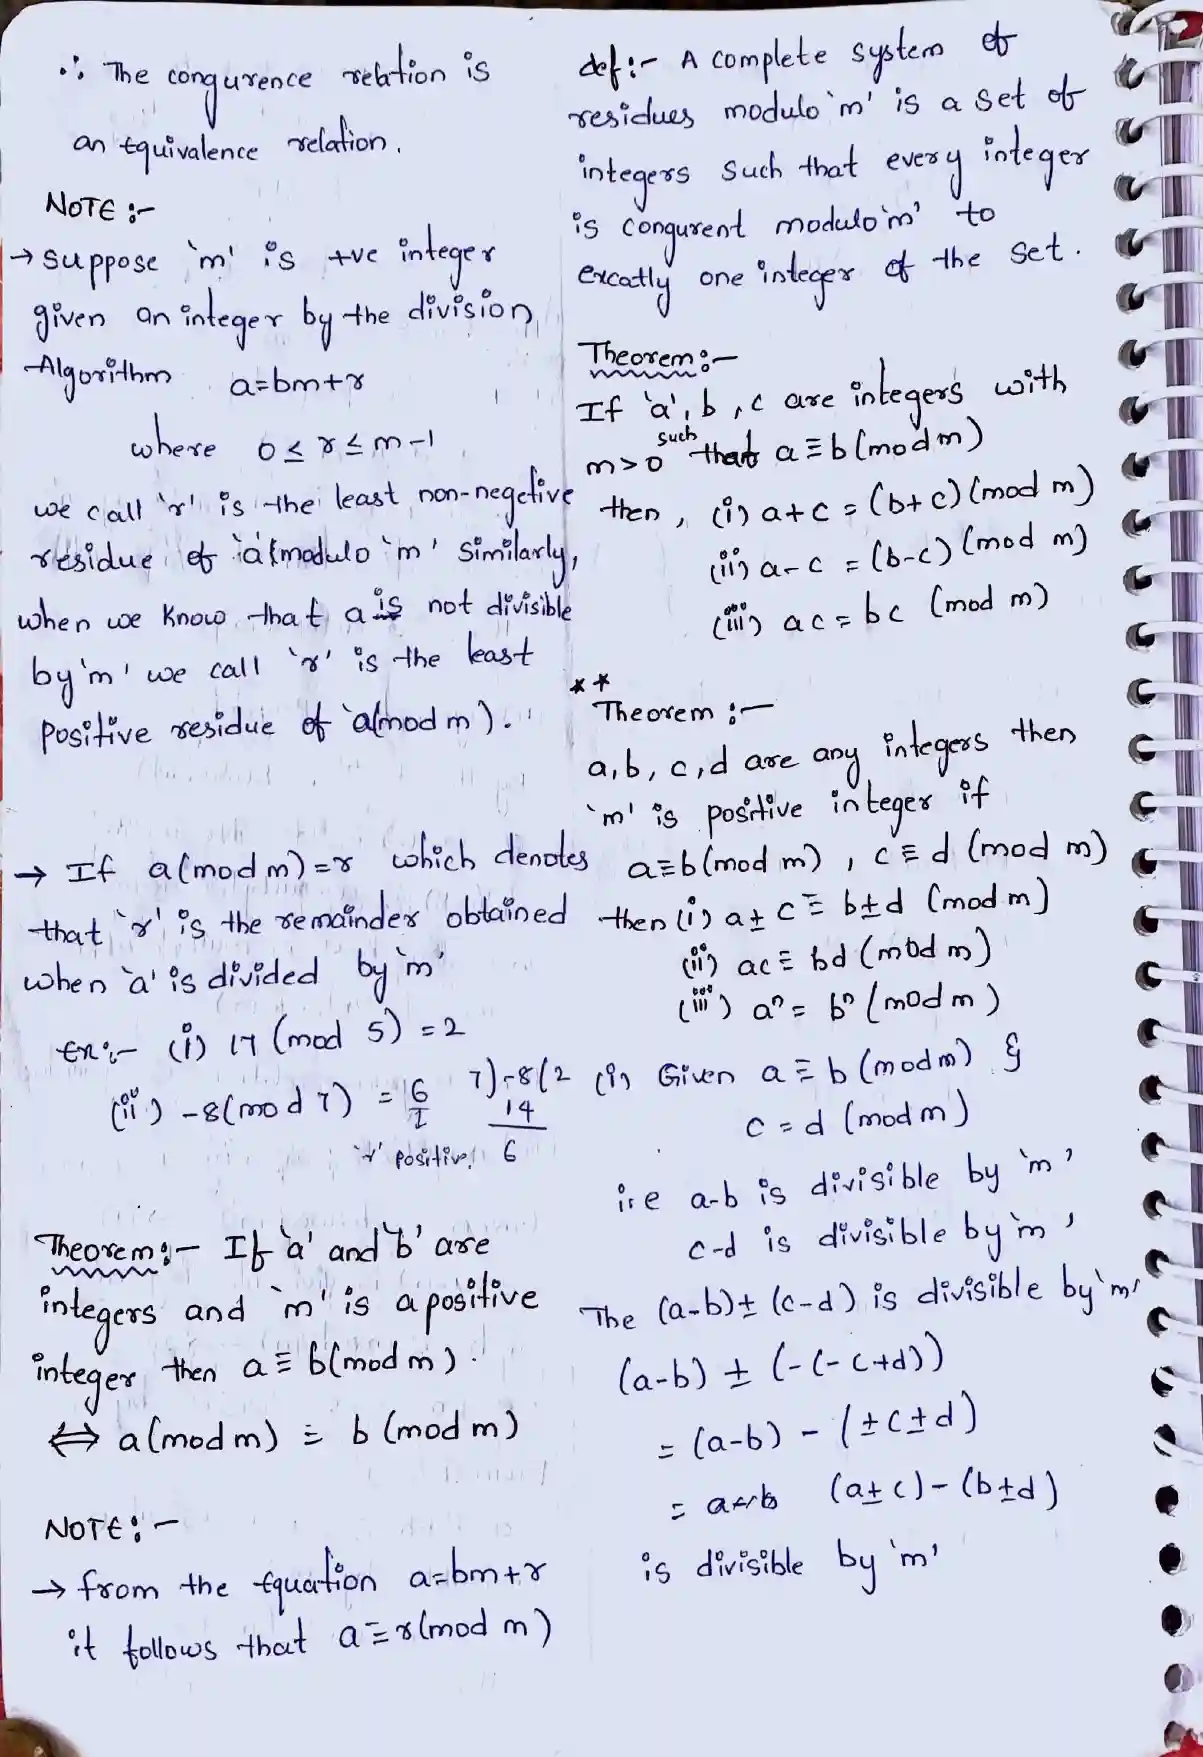 ∴ The congurence relation is
an Equivalence relation.
NOTE :-
→ suppose `m' is +ve integer
given an integer by the division
Algorithm a=bm+r
where 0 ≤ r ≤ m-1
we call `r' is the least non-negetive
residue of `a(modulo `m' Similarly,
when we know that a is not divisible
by `m' we call `r' is the least
Positive residue of `a(mod m).
→ If a(mod m)=r which denotes
that `r' is the remainder obtained
when `a' is divided by `m'
Ex:- (i) 17 (mod 5) = 2
(ii) -8(mod 7) = 6
7)-8(2
14
6
`r' positive.
Theorem:- If `a' and `b' are
integers and `m' is a positive
integer then a ≡ b(mod m).
⇔ a(mod m) = b (mod m)
NOTE:-
→ from the Equation a=bm+r
it follows that a ≡ r(mod m)
def:- A complete system of
residues modulo `m' is a set of
integers such that every integer
is congurent modulo `m' to
excatly one integer of the set.
Theorem:-
If `a', b, c are integers with
m>0 such that a ≡ b(mod m)
then, (i) a+c = (b+c) (mod m)
(ii) a-c = (b-c) (mod m)
(iii) ac = bc (mod m)
**
Theorem :-
a, b, c, d are any integers then
`m' is positive integer if
a≡b(mod m), c ≡ d (mod m)
then (i) a ± c ≡ b±d (mod m)
(ii) ac ≡ bd (mod m)
(iii) aⁿ = bⁿ (mod m)
(i) Given a ≡ b (mod m) &
c = d (mod m)
i.e a-b is divisible by `m'
c-d is divisible by `m'
The (a-b) ± (c-d) is divisible by `m'
(a-b) ± (-(-c+d))
= (a-b) - (±c±d)
= (a±c) - (b±d)
is divisible by `m'